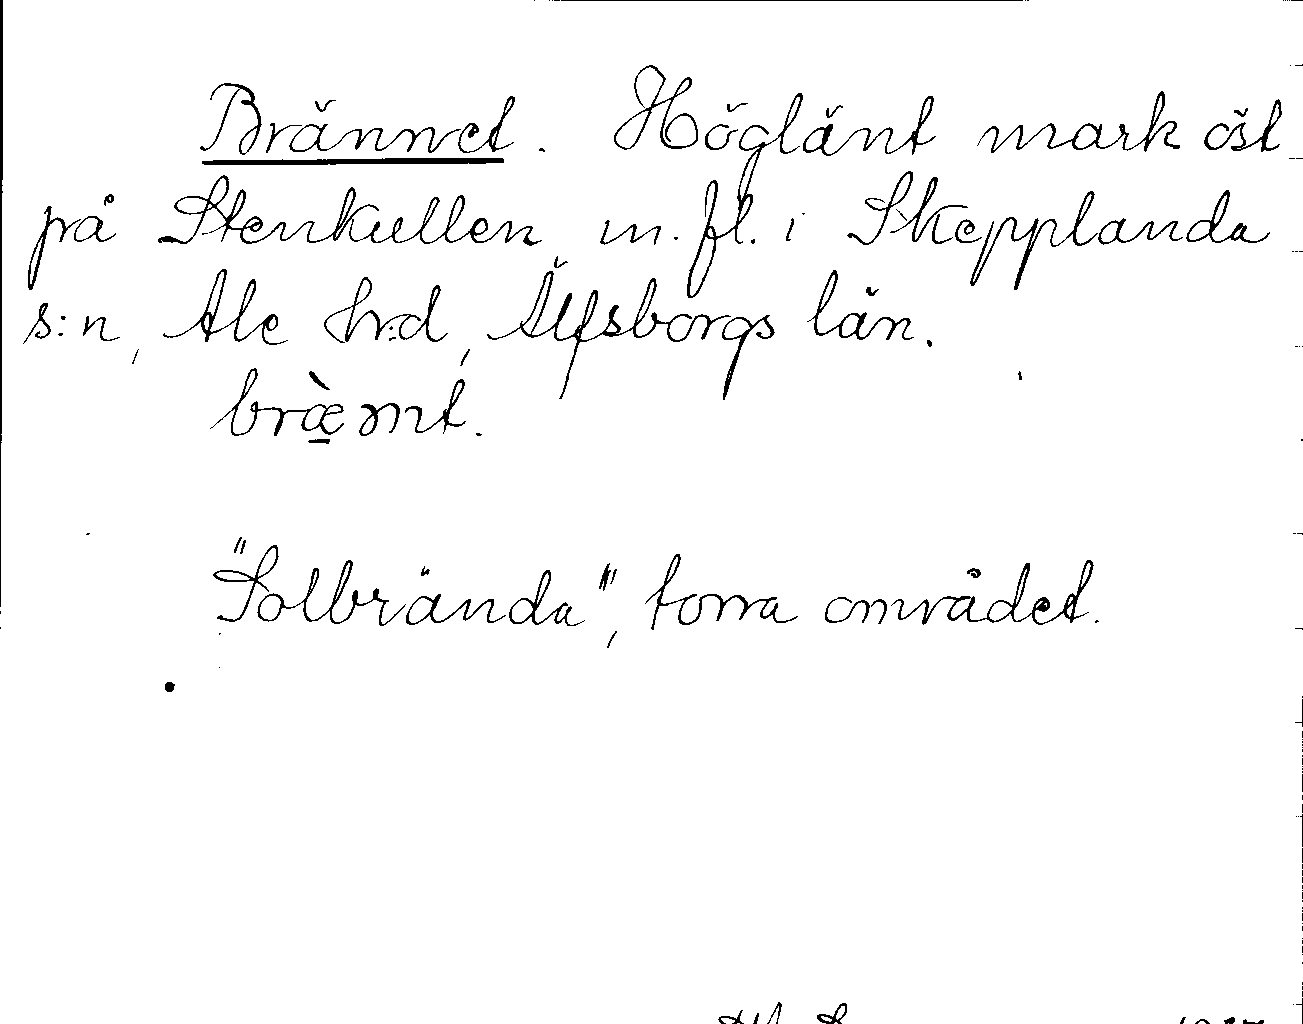 Brännet. Höglänt mark öst
på Stenkullen m.fl. i Skepplanda
s:n, Ale hrd, Älfsborgs län.
bræ̱̀mt.
"Solbrända", torra området.